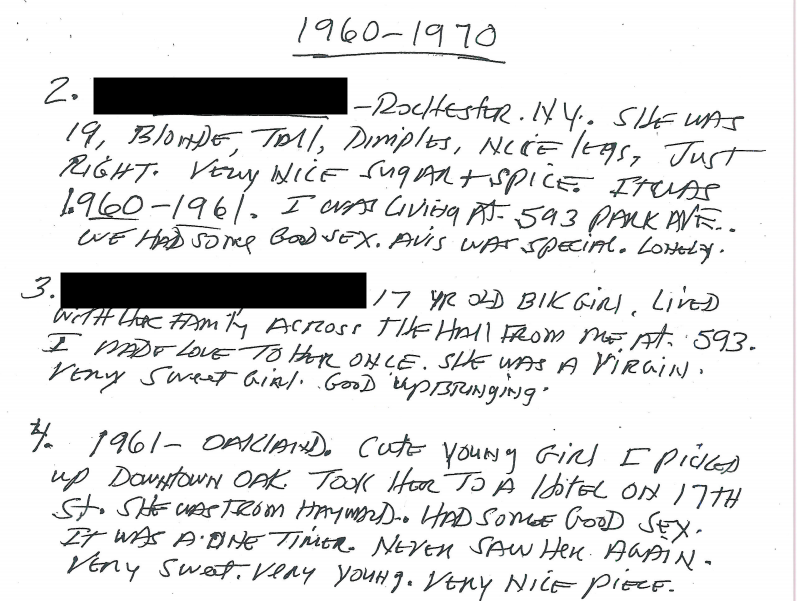 1960-1970
2. -ROCHESTER. N.Y. SHE WAS
19, BLONDE, TALL, DIMPLES, NICE LEGS, JUST
RIGHT. VERY NICE SUGAR + SPICE. IT WAS
1960-1961. I WAS LIVING AT 593 PARK AVE..
WE HAD SOME GOOD SEX. AVIS WAS SPECIAL. LONELY.
3. 17 YR OLD BlK GIRL. LIVED
WITH HER FAMILY ACROSS THE HALL FROM ME AT 593.
I MADE LOVE TO HER ONCE. SHE WAS A VIRGIN.
VERY SWEET GIRL. GOOD UPBRINGING.
4. 1961- OAKLAND. CUTE YOUNG GIRL I PICKED
UP DOWNTOWN OAK. TOOK HER TO A HOTEL ON 17TH
ST. SHE WAS FROM HAYWARD. HAD SOME GOOD SEX.
IT WAS A ONE TIMER. NEVER SAW HER AGAIN.
VERY SWEET. VERY YOUNG. VERY NICE PIECE.